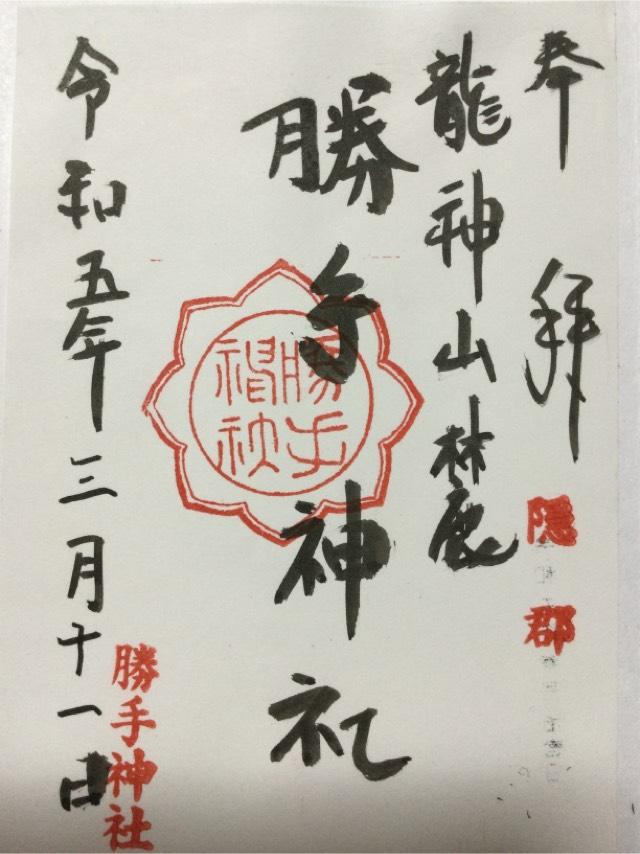 奉拝
隠郡
龍神山麓
勝手神社
勝手神社
令和五年三月十一日
勝手神社